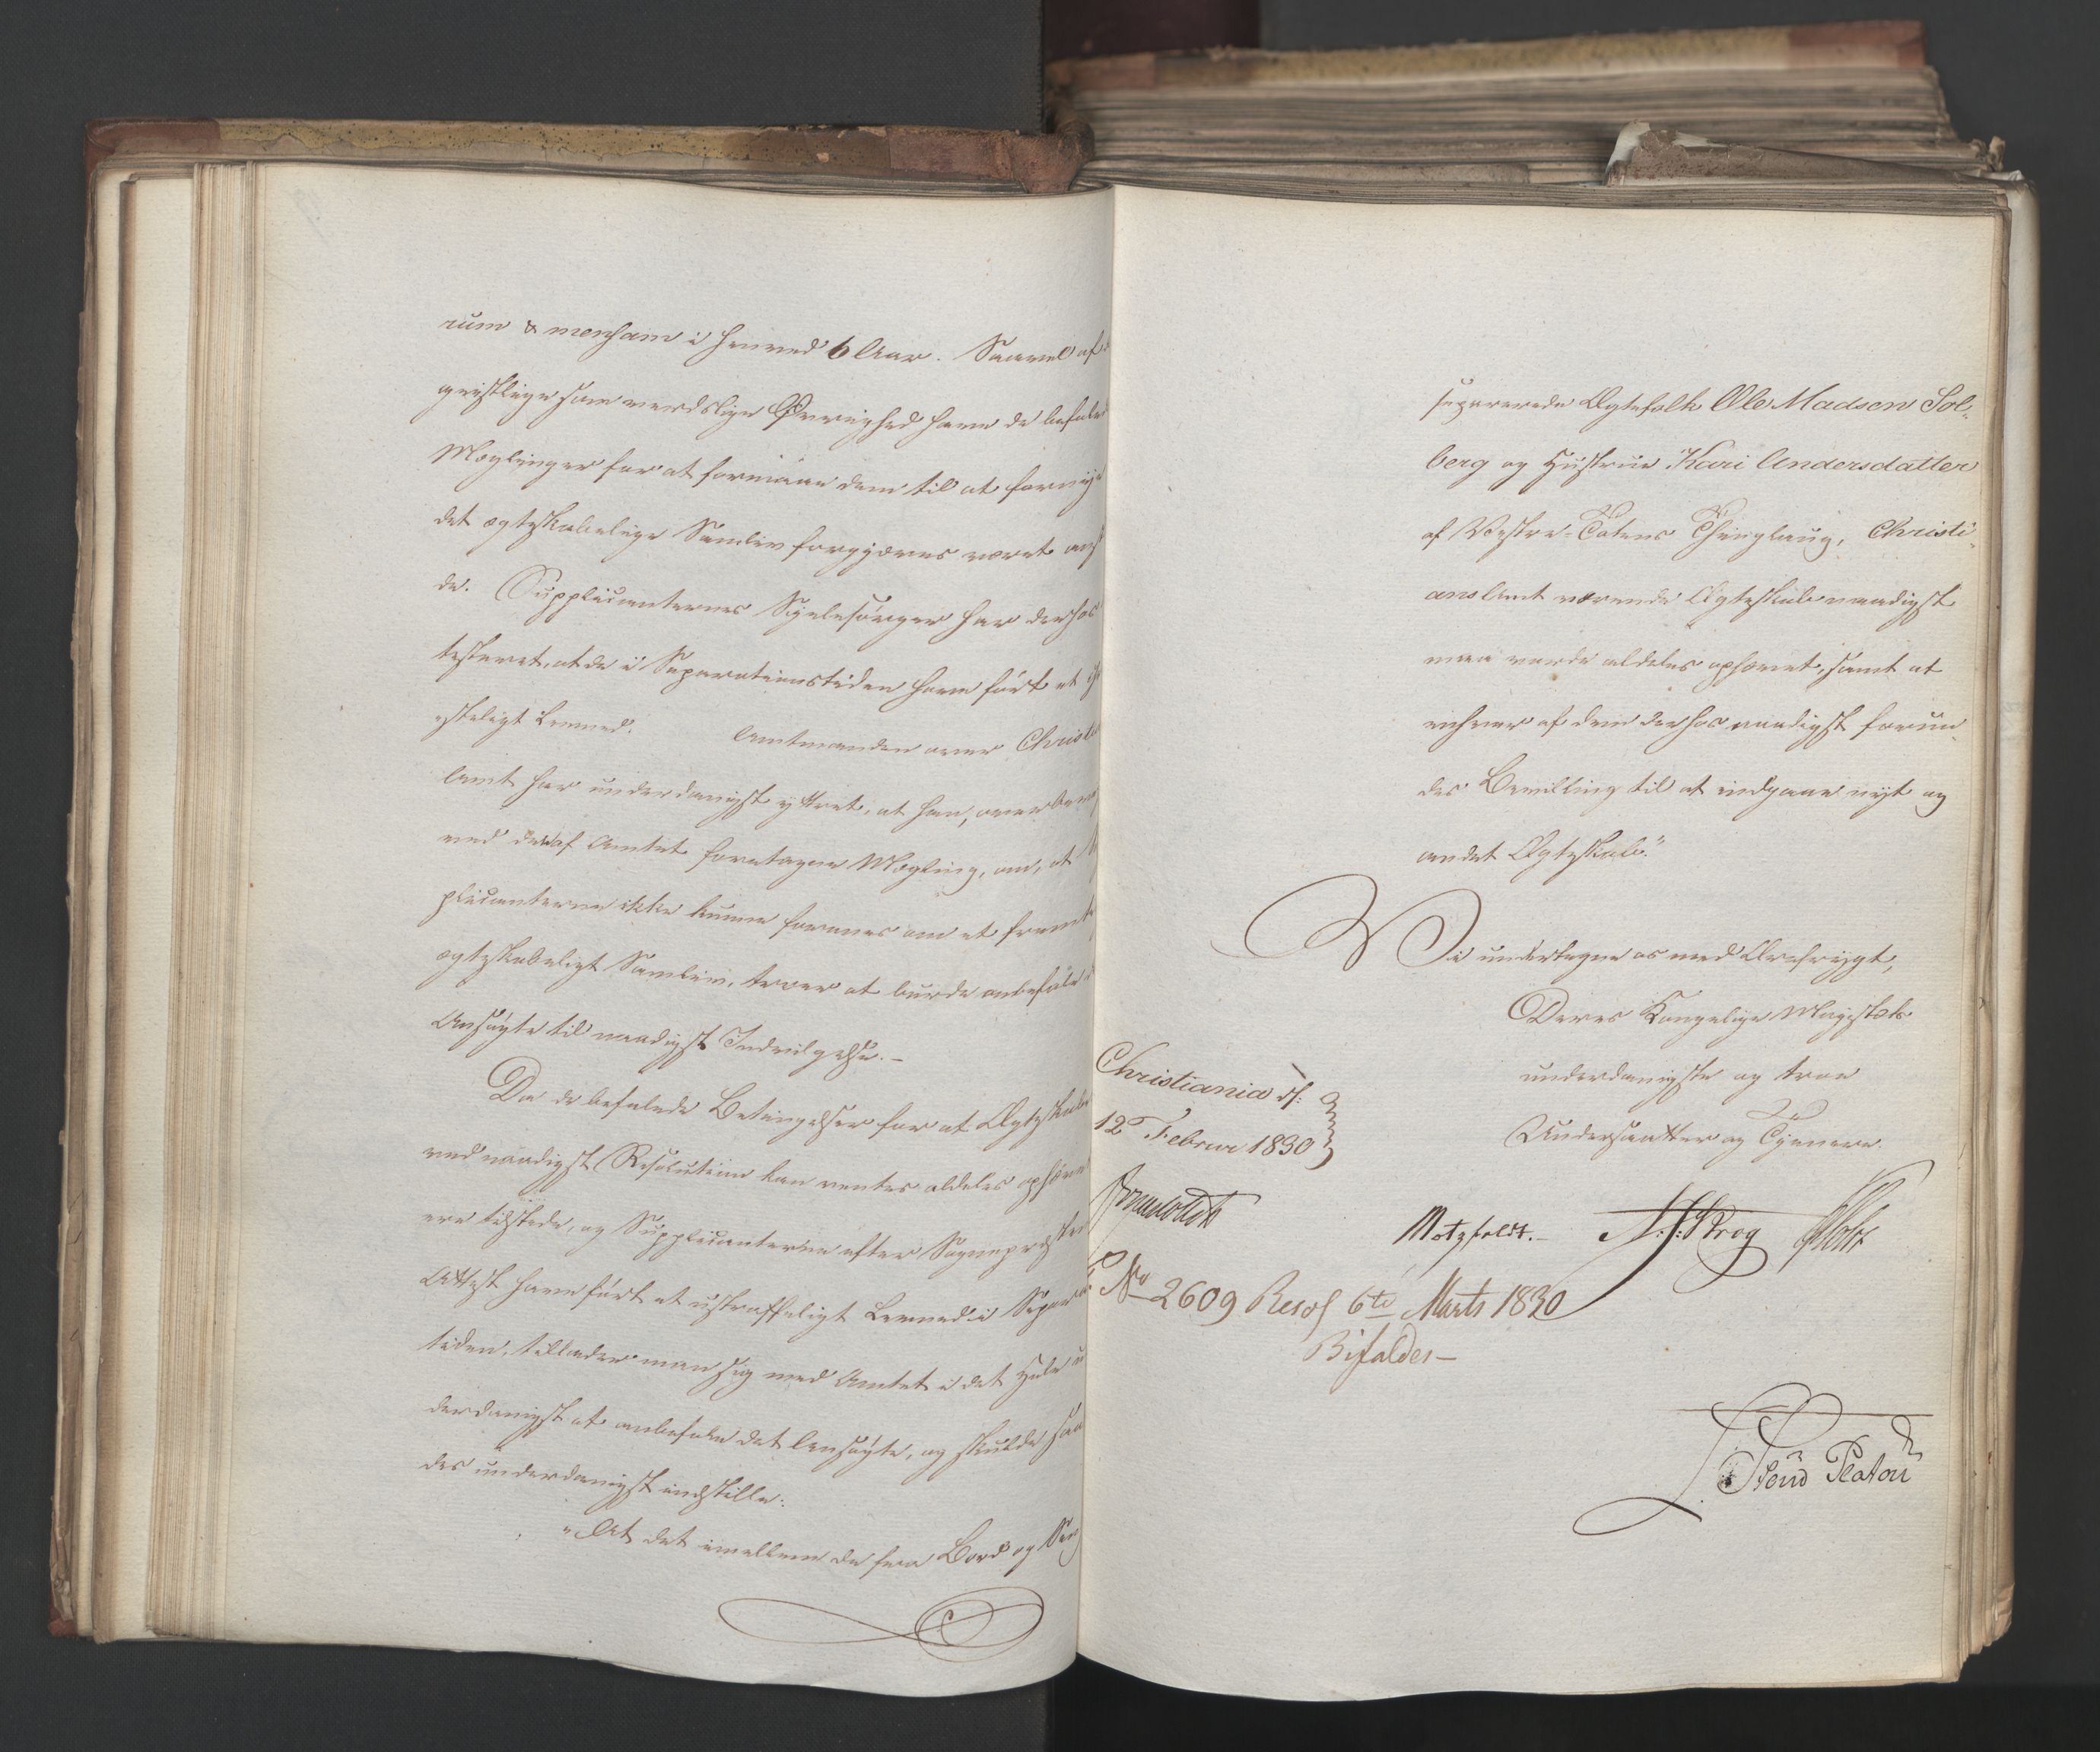 rum & mensam i henved 6 Aar. Saavel af
geistlige som verdslige Øvrighed have de befalede
Mæglinger for at formaae dem til at fornye
det ægteskabelige Samliv forgjæves været
de. Supplicanternes Sjelesørger har derhos
testeret, at de i Separationstiden have ført et
Levned. Amtmanden over Christi
Amt har underdanigst yttret, at han,
ved den af Amtet foretagne Mægling, om, at
plicanterne ikke kunne forenes om et
ægteskabeligt Samliv, troer at burde anbefale
Ansøgte til naadigst Indvilgelse. –
Da de befalede Betingelser for at Ægteskaber
ved naadigst Resolution kan ventes aldeles ophævet
ere tilstede, og Supplicanterne efter Sognepræstens
Attest have ført et ustraffeligt Levned i Separa
tiden, tillader man sig med Amtet i det Hele un
derdanigst at anbefale det Ansøgte, og skulde saa
des underdanigst indstille:
"At det imellem de fra Bord og Seng
separerede Ægtefolk Ole Madsen Sol-
berg og Hustrue Kari Andersdatter
af Vestre-Totens Thinglaug, Christi-
ans Amt værende Ægteskab naadigst
maa vorde aldeles ophævet, samt at
enhver af dem derhos naadigst forun-
des Bevilling til at indgaae nyt og
andet Ægteskab."
Vi undertegne os med Ærefrygt,
Deres Kongelige Majestæts
underdanigste og troe
Undersaatter og Tjenere.
Christiania d:
12 Februar 1830
Motzfeldt. – Krog
No 2609 Resol 6te Marts 1830
Bifaldes –
Platou